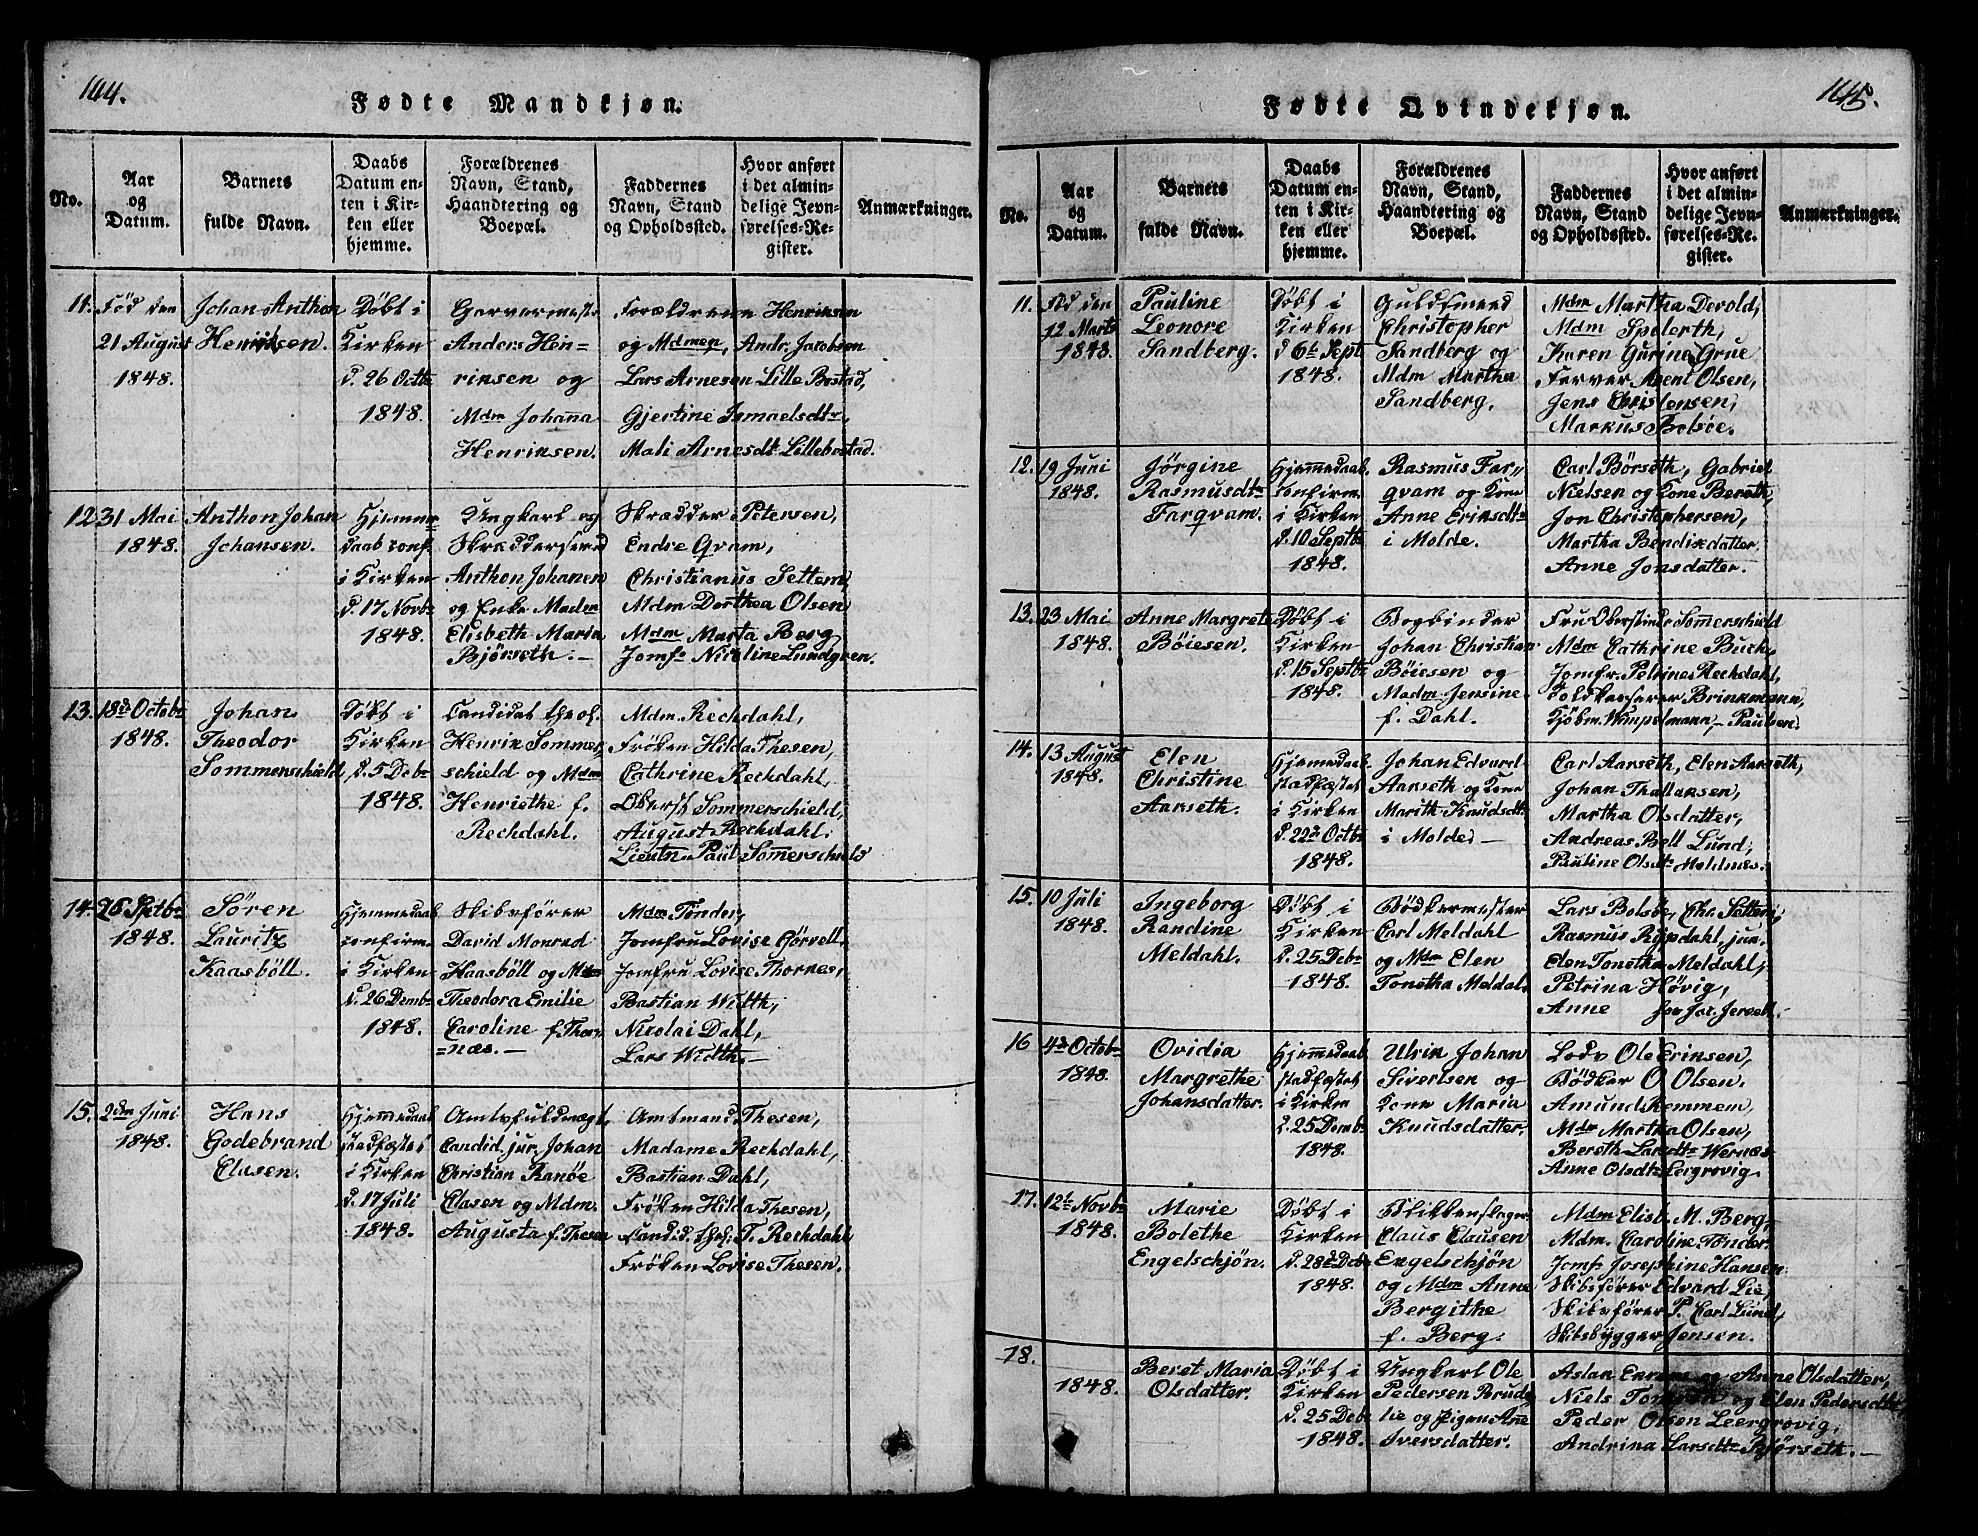 144.
Fødte Mandkjøn.
No.
Aar
og
Datum.
Barnets
fulde Navn.
Daabs
Datum en-
ten i Kir-
ken eller
hjemme.
Forældrenes
Navn, Stand,
Haandtering og
Boepæl.
Faddernes
Navn, Stand
og Opholdssted.
Hvor anført
i det almin-
delige Jevn-
førelses-Re-
gister.
Anmærkninger.
11.
Fød den
21 August
1848.
Johan Anthon
Henriksen.
Døbt i
Kirken
d. 26 Octb
1848.
Garvermester
Anders Hen=
riksen og
Mdm Johanna
Henriksen.
Forældrene Henriksen
og Mdmen, Andr. Jacobsen
Lars Arnesen Lille Bostad,
Gjertine Ismaelsdtr.
Mali Arnesdt Lillebostad.
12.
31 Mai
1848.
Anthon Johan
Johansen.
Hjemme
daab conf.
i Kirken
d. 17 Novb
1848.
Ungkarl og
Skræddersvend
Anthon Johansen
og Enke Madm
Elisbeth Maria
Bjørseth.—
Skrædder Petersen,
Endre Qvam,
Christianus Settem,
Mdm Dorthea Olsen
Mdm Marta Berg,
Jomf. Nicoline Lundgren.
13.
18de Octobr
1848.
Johan
Theodor
Sommerschield
Døbt i
Kirken
d. 5 Debr
1848.
Candidat theol.
Henrik Sommer-
schield og Mdm
Henriethe f.
Rechdahl.
Mdm. Rechdahl,
Frøken Hilda Thesen,
Cathrine Rechdahl,
Oberst Sommerschield,
August Rechdahl.
Lieutn. Paul Somerschield
14.
26 Sptbr
1848.
Søren
Lauritz
Kaasbøll.
Hjemmedaab
confirm.
i Kirken
d. 26 Dembr
1848.
Skibsfører
David Monrad
Kaasbøll og Mdm
Theodora Emilie
Caroline f. Thor-
=næs.—
Mdm Tønder,
Jomfru Lovise Gørvell,
Jomfru Lovise Thornes,
Bastian Width,
Nicolai Dahl,
Lars Width.—
15.
2den Juni
1848.
Hans
Godebrand
Clasen.
Hjemmedaab
stadfæstet
i Kirken
d. 17 Juli
1848.
Amtsfuldmægt.
Candid. jur. Johan
Christian Ranøe
Clasen og Mdm.
Augusta f. Thesen
Amtmand Thesen,
Madame Rechdahl,
Bastian Dahl,
Frøken Hilda Thesen,
Candid. theol. T. Rechdahl
Frøken Lovise Thesen.
145.
Fødte Qvindekjøn.
No.
Aar
og
Datum.
Barnets
fulde Navn.
Daabs
Datum en-
ten i Kir-
ken eller
hjemme.
Forældrenes
Navn, Stand,
Haandtering og
Boepæl.
Faddernes
Navn, Stand
og Opholdssted.
Hvor anført
i det almin-
delige Jevn-
førelses-Re-
gister.
Anmærkninger.
11.
Fød den
12 Marts
1848.
Pauline
Leonore
Sandberg.
Døbt i
Kirken
d 6te Sept
1848.
Guldsmed
Christopher
Sandberg og
Mdm Martha
Sandberg.
Mdm Martha Devold,
Mdm Spilerth,
Karen Gurine Grue
Farver Arent Olsen,
Jens Christensen,
Markus Bolsøe.
12.
19 Juni
1848.
Jørgine
Rasmusdtr
Farqvam.
Hjemmedaab
confirm.
i Kirken
d. 10 Septbr
1848.
Rasmus Far=
qvam og Kone
Anne Eriksdtr
i Molde.
Carl Børseth, Gabriel
Nielsen og Kone Bereth,
Jon Christophersen,
Martha Bendixdatter,
Anne Jonsdatter.
13.
23 Mai
1848.
Anne Margrete
Bøiesen.
Døbt i
Kirken
d. 15 Septbr
1848.
Bogbinder
Johan Christian
Bøiesen og
Madm Jensine
f. Dahl.
Fru Oberstinde Somerschield
Mdm Cathrine Buck,
Jomfr. Petrine Rechdahl,
Toldkasserer Brinkmann,
Kjøbm. Wimpelmann,— Paulsen.
14.
13 August
1848.
Elen
Christine
Aarseth.
Hjemmedaab
stadfæstet
i Kirken
d. 22de Octbr
1848.
Johan Edvard
Aarseth og Kone
Marith Knudsdtr
i Molde.—
Carl Aarseth, Elen Aarseth,
Johan Thallaksen,
Martha Olsdatter,
Andreas Bell Lund,
Pauline Olsdtr Moldnes.
15.
10 Juli
1848.
Ingeborg
Randine
Meldahl.
Døbt i
Kirken
d. 25 Debr
1848.
Bødkermester
Carl Meldahl
og Mdm Elen
Tonetha Meldal.
Lars Bolsøe, Chr. Settem,
Rasmus Rypdahl, jun.
Elen Tonetha Meldahl,
Petrina Høvig,
Anne Jon Jac. Jervell.
16
4de Octob.
1848.
Ovidia
Margrethe
Johansdatter.
Hjemmedaab
stadfæstet
i Kirken
d. 25 Dembr
1848.
Ulrik Johan
Sivertsen og
Kone Maria
Knudsdatter.
Lods Ole Eriksen,
Bødker O Olsen.
Amund Remmem,
Mdm Martha Olsen,
Bereth Larsdtr Wernes
Anne Olsdtr Leergrovig.
17.
12te Novbr
1848.
Marie
Bolethe
Engelschjøn.
Døbt i
Kirken
d. 28de Debr
1848.
Blikkenslager
Claus Clausen
Engelschjøn
og Mdm Anne
Bergithe
f. Berg.
Mdm Elisb. M. Berg,
Mdm. Caroline Tønder.
Jomfr Josephine Hansen
Skibsfører Edvard Lie,
Skibsfører P. Carl Lund,
Skibsbygger Jensen.
18.
1848.
Beret Maria
Olsdatter.
Døbt i
Kirken
d. 25 Debr
1848.
Ungkarl Ole
Pedersen Brude-
lie og Pigen Ane
Iversdatter.
Aslan og Anne Olsdatter,
Niels og Elen Pedersdtr
Peder Olsen Leergrovig,
Andrina Larsdtr Bjørseth.—